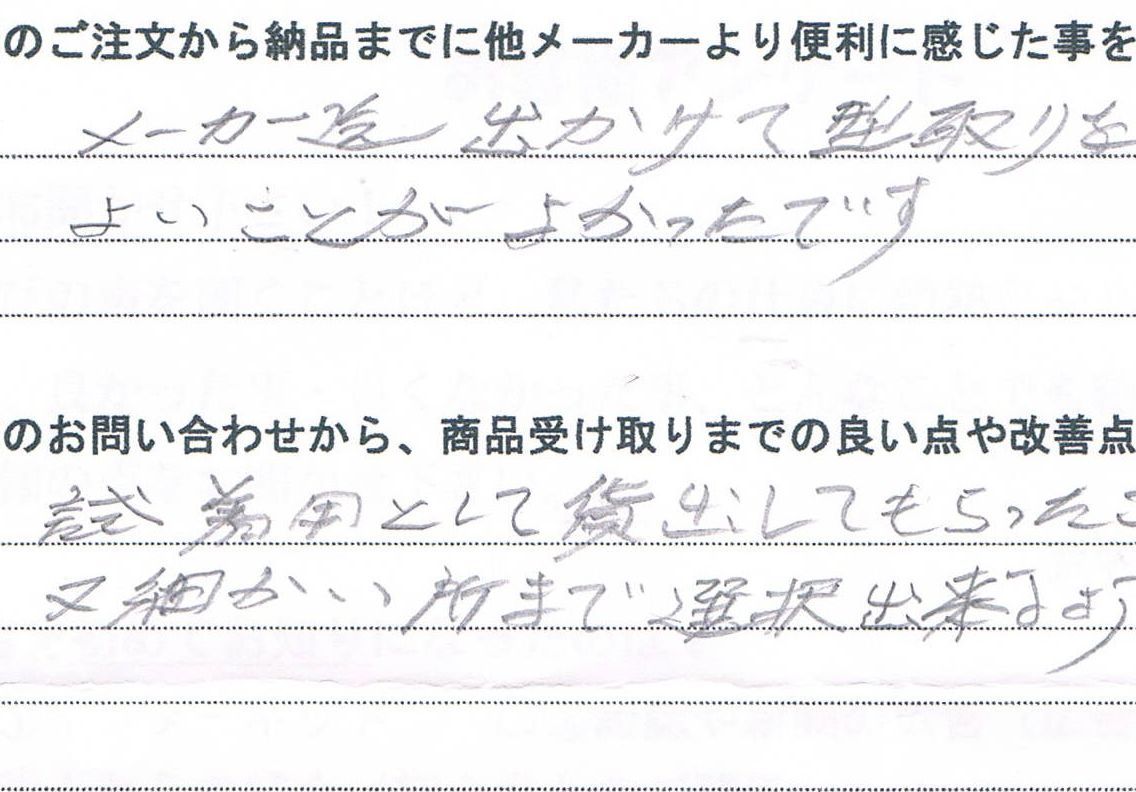 のご注文から納品までに他メーカーより便利に感じた事を
メーカー迄 出かけて型取りを
よいことがよかったです
のお問い合わせから、商品受け取りまでの良い点や改善点
試着用として貸出してもらったこ
又細かい所まで選択出来るよう